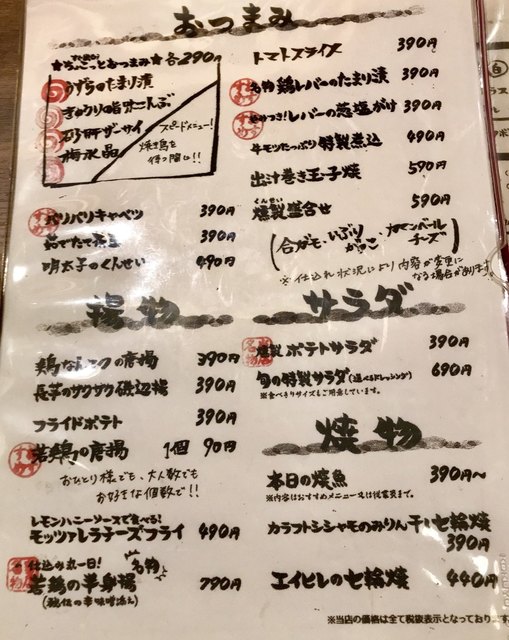 おつまみ
★ちょこっとおつまみ★ 各290円
うずらのたまり漬
きゅうり脂味こんぶ
砂肝ザーサイ
梅水晶
スピードメニュー!
焼き鳥を
待つ間に!!
パリパリキャベツ 390円
茹でたて枝豆 390円
明太子のくんせい 490円
トマトスライス 390円
名物 鶏レバーのたまり漬 390円
レバーの葱塩がけ 390円
牛モツたっぷり特製煮込 490円
出汁巻き玉子焼 590円
くんせい
燻製盛合せ 590円
(合ガモ・いぶりがっこ・カマンベールチーズ)
※仕入れ状況により内容が変更になる場合があります。
揚物
鶏なんこつの唐揚 390円
長芋のサクサク磯辺揚 390円
フライドポテト 390円
若鶏の唐揚 1個 90円
おひとり様でも、大人数でも
お好きな個数で!!
レモンハニーソースで食べる!
モッツァレラチーズフライ 490円
仕込み丸一日! 名物
若鶏の半身揚 790円
(秘伝の辛味噌添え)
サラダ
燻製ポテトサラダ 390円
旬の特製サラダ(選べるドレッシング) 690円
※食べきりサイズもご用意しています。
焼物
本日の焼魚 390円~
※内容はおすすめメニュー又は従業員まで。
カラフトシシャモのみりん干し七輪焼
390円
エイヒレの七輪焼 440円
※当店の価格は全て税抜表示となっておりま